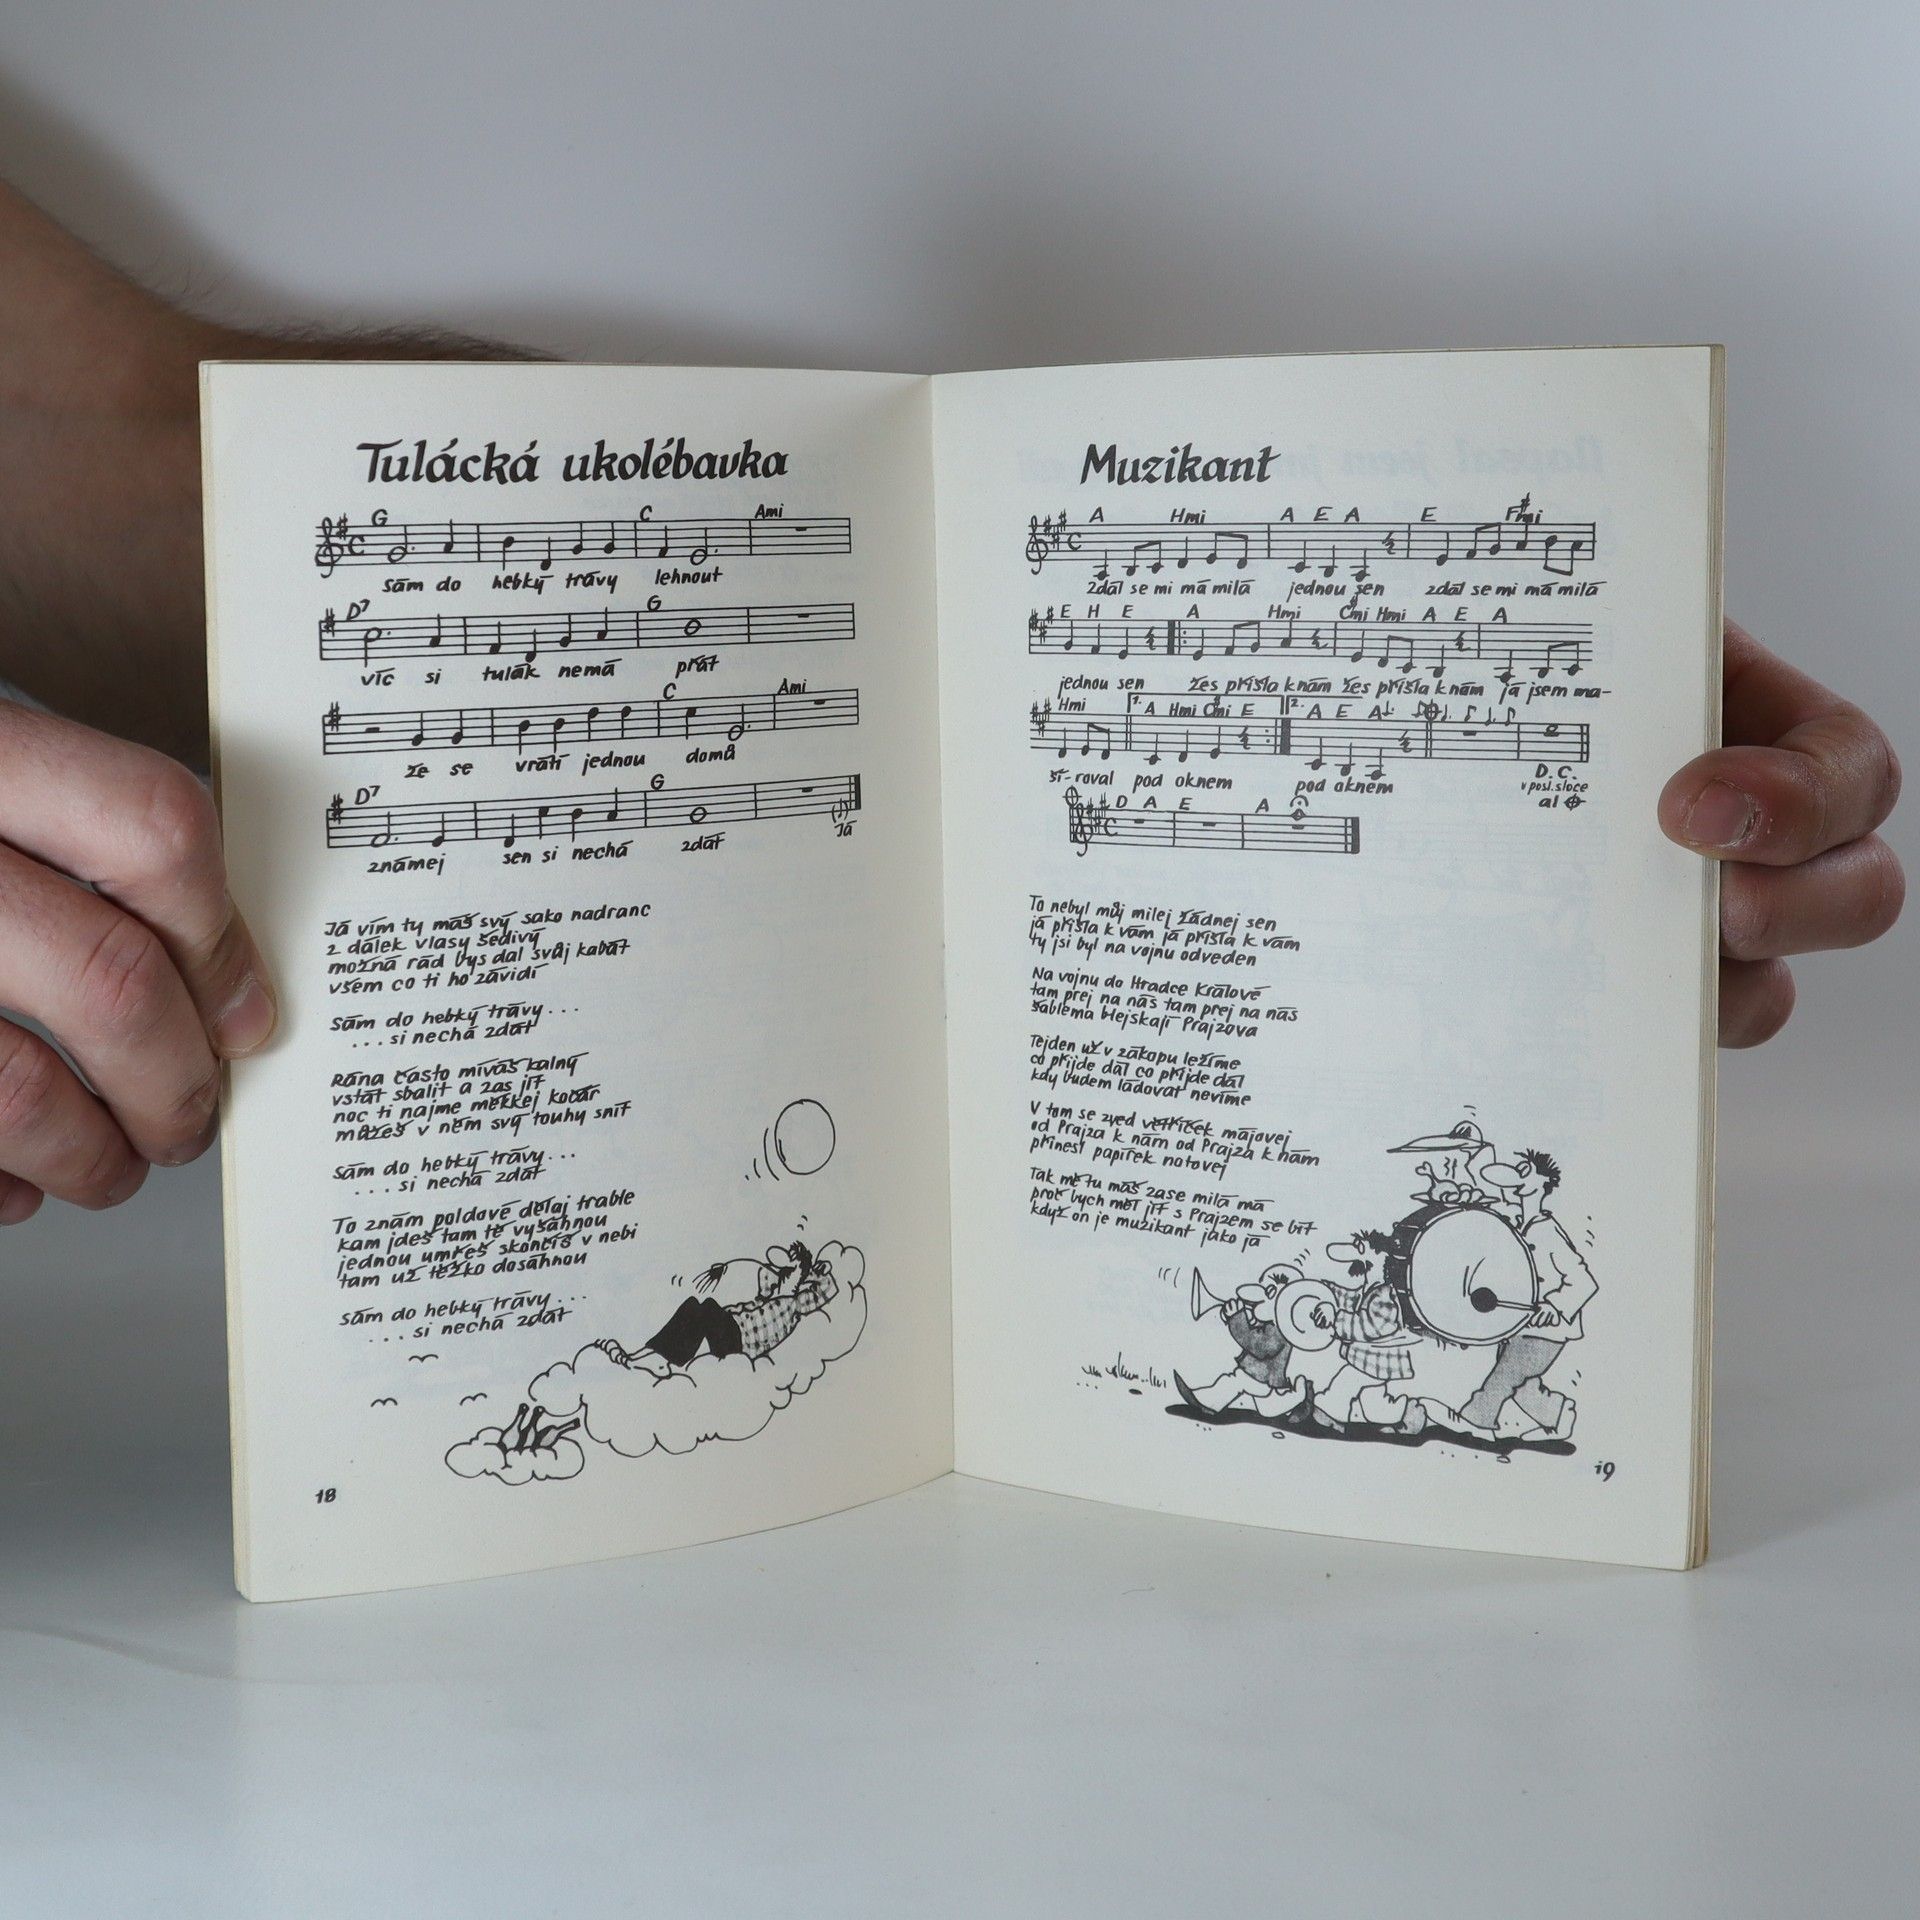 Tulácká ukolébavka
G C Ami
Sám do hebký trávy lehnout
D7 G
víc si tulák nemá přát
C Ami
že se vrátí jednou domů
D7 G
známej sen si nechá zdát Já
Já vím ty máš svý sako nadranc
z dálek vlasy šedivý
možná rád bys dal svůj kabát
všem co ti ho závidí
Sám do hebký trávy...
...si nechá zdát
Rána často míváš kalný
vstát sbalit a zas jít
noc ti najme měkkej kočár
můžeš v něm svý touhy snít
Sám do hebký trávy...
...si nechá zdát
To znám poldové dělaj trable
kam jdeš tam tě vyšáhnou
jednou umřeš skončíš v nebi
tam už těžko dosáhnou
Sám do hebký trávy...
...si nechá zdát
18
Muzikant
A Hmi A E A E F#mi
Zdál se mi má milá jednou sen zdál se mi má milá
E H E A Hmi C#mi Hmi A E A
jednou sen žes přišla k nám žes přišla k nám já jsem ma-
Hmi 1. A Hmi C#mi E 2. A E A
ší-roval pod oknem pod oknem D.C.
v posl. sloce
al
D A E A
To nebyl můj milej žádnej sen
já přišla k vám já přišla k vám
ty jsi byl na vojnu odveden
Na vojnu do Hradce Králové
tam prej na nás tam prej na nás
šablema blejskají Prajzova
Tejden už v zákopu ležíme
co přijde dál co přijde dál
kdy budem ládovat nevíme
V tom se zved větříček májovej
od Prajza k nám od Prajza k nám
přinesl papírek notovej
Tak mě tu máš zase milá má
proč bych měl jít s Prajzem se bít
když on je muzikant jako já
19